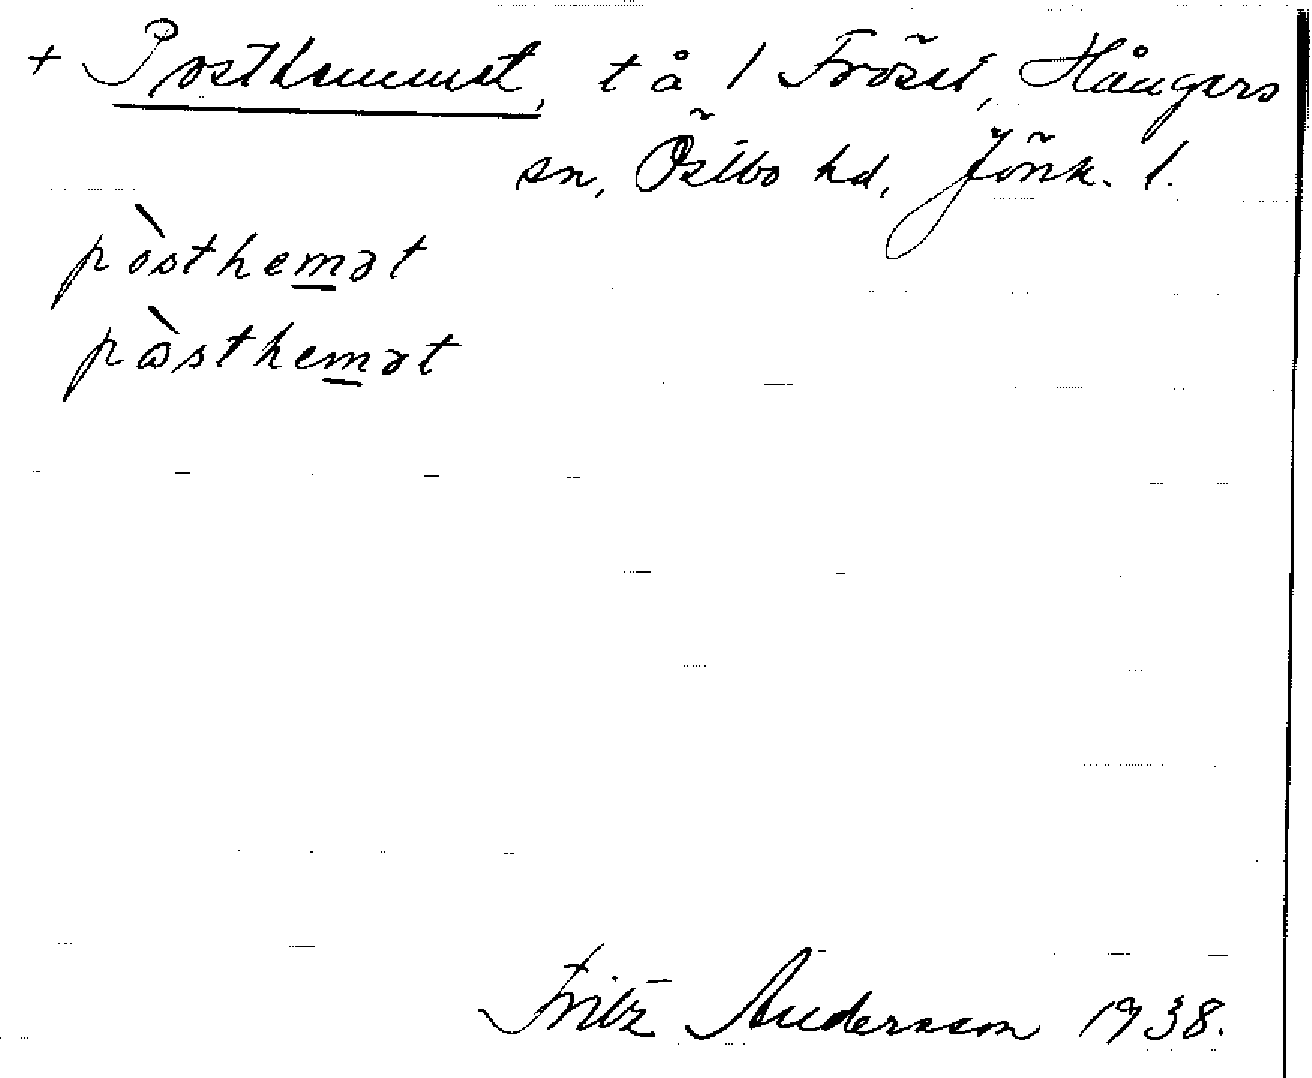 + Posthemmet, t å / Fröset, Hångers
sn, Östbo hd, Jönk. l.
pòsthemət
pàsthemət
Fritz Andersson 1938.